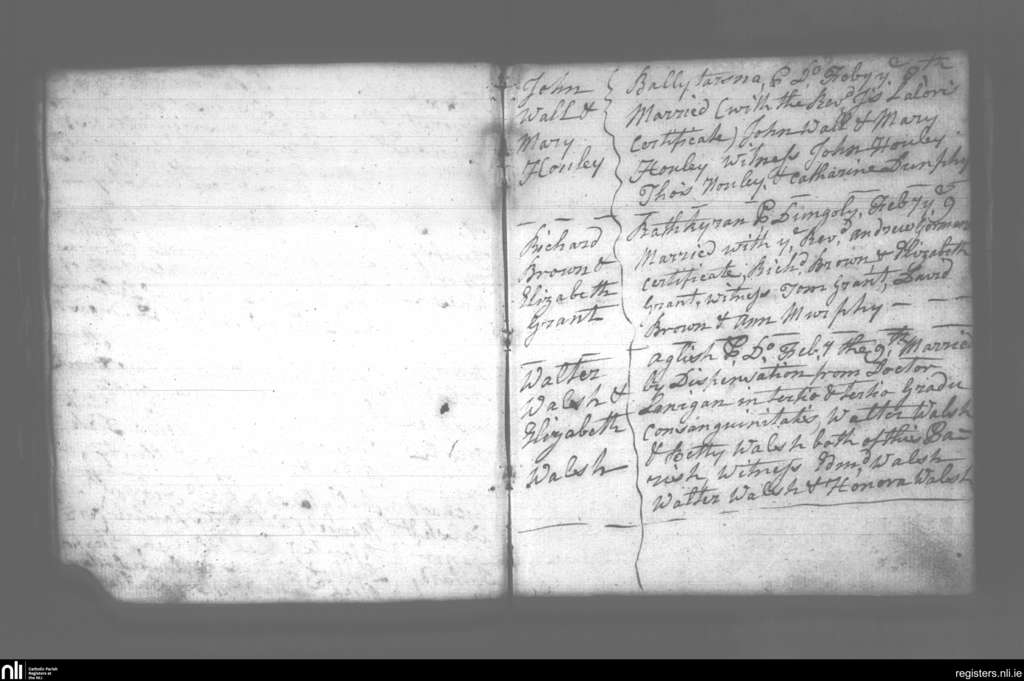 John
Wall &
Mary
Houley
Ballytarsna P Do Feby ye
Married (with the Revd Js Lalors
Certificate) John Wall & Mary
Houley witness John Houley
Thos Houley & Catharine Dunphy
Richard
Brown &
Elizabeth
Grant
Rathkyran P Feby ye 9
Married with ye Revd Andrew Gorman
certificate, Richd Brown & Elizabeth
Grant, witness Tom Grant, David
Brown & Ann Murphy
Walter
Walsh &
Elizabeth
Walsh
aglish P Do Feb.y the 9th Married
by Dispensation from Doctor
Lanigan in tertio & tertio Gradu
consanguinitatis Walter Walsh
& Betty Walsh both of this Pa-
rish witness Edmd Walsh
Walter Walsh & Honora Walsh
nli
Catholic Parish
Registers at
the NLI
registers.nli.ie